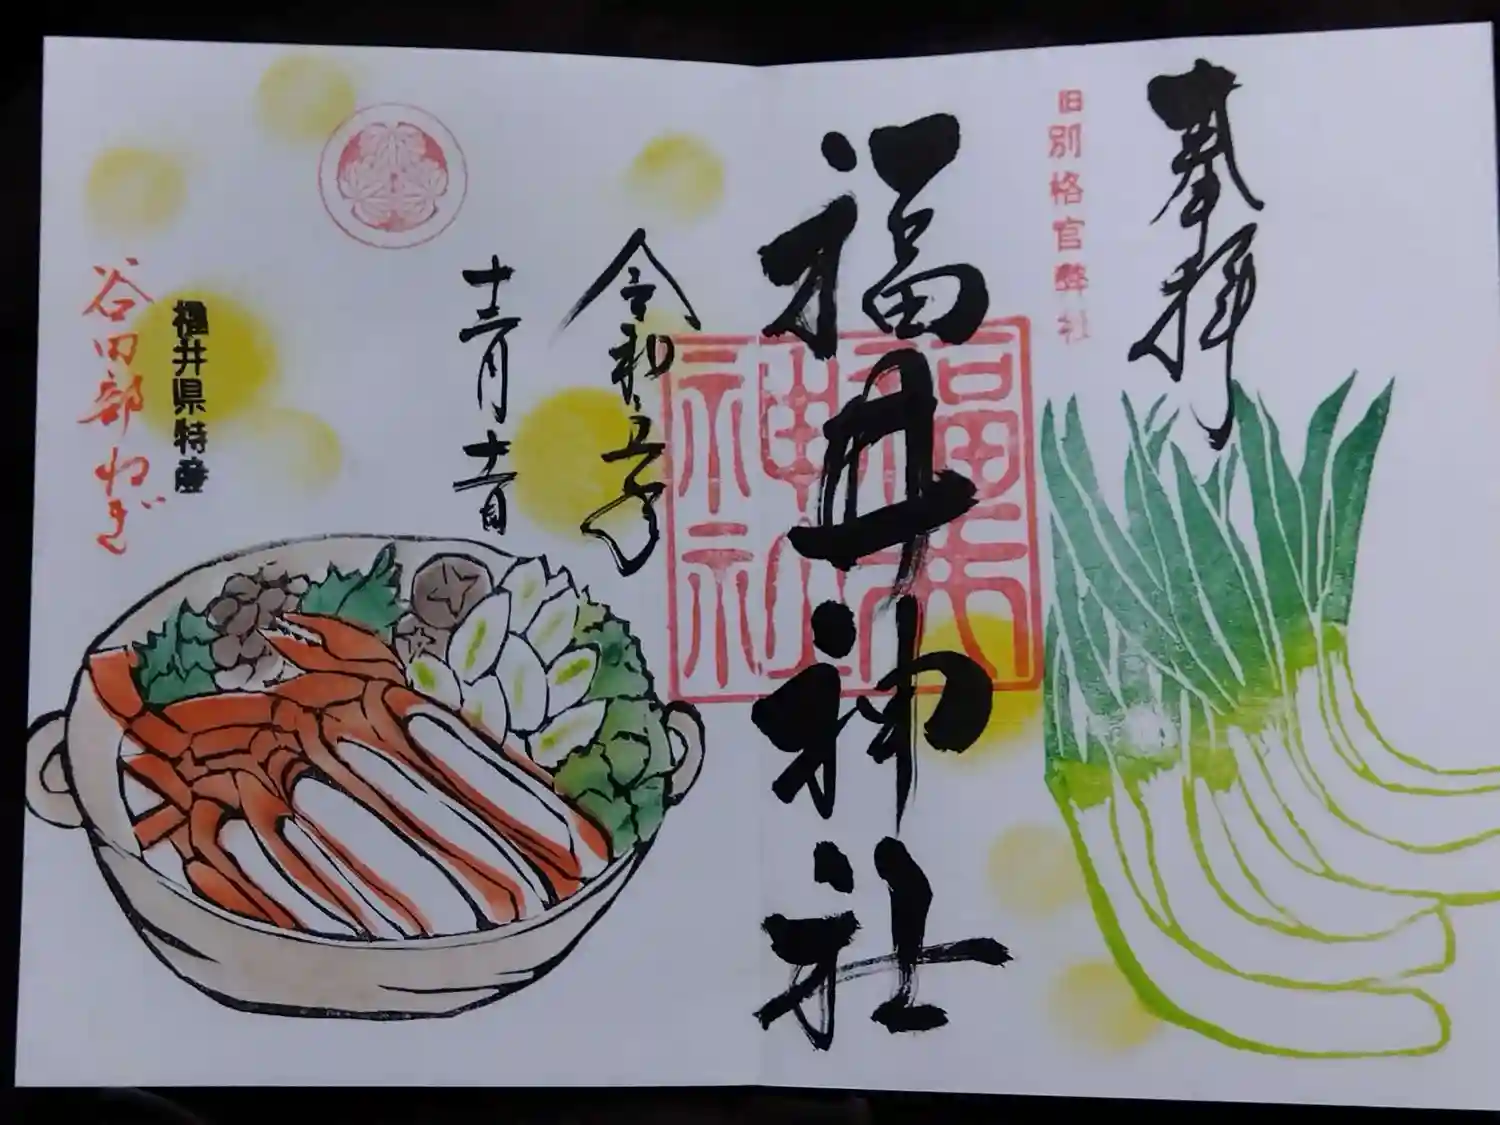 奉拝
旧別格官弊社
福井神社
福井神社
令和五年
十二月
福井県特産
谷田部ねぎ